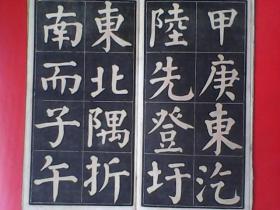 甲庚東汔
陸先登圩
東北隅折
南而子午